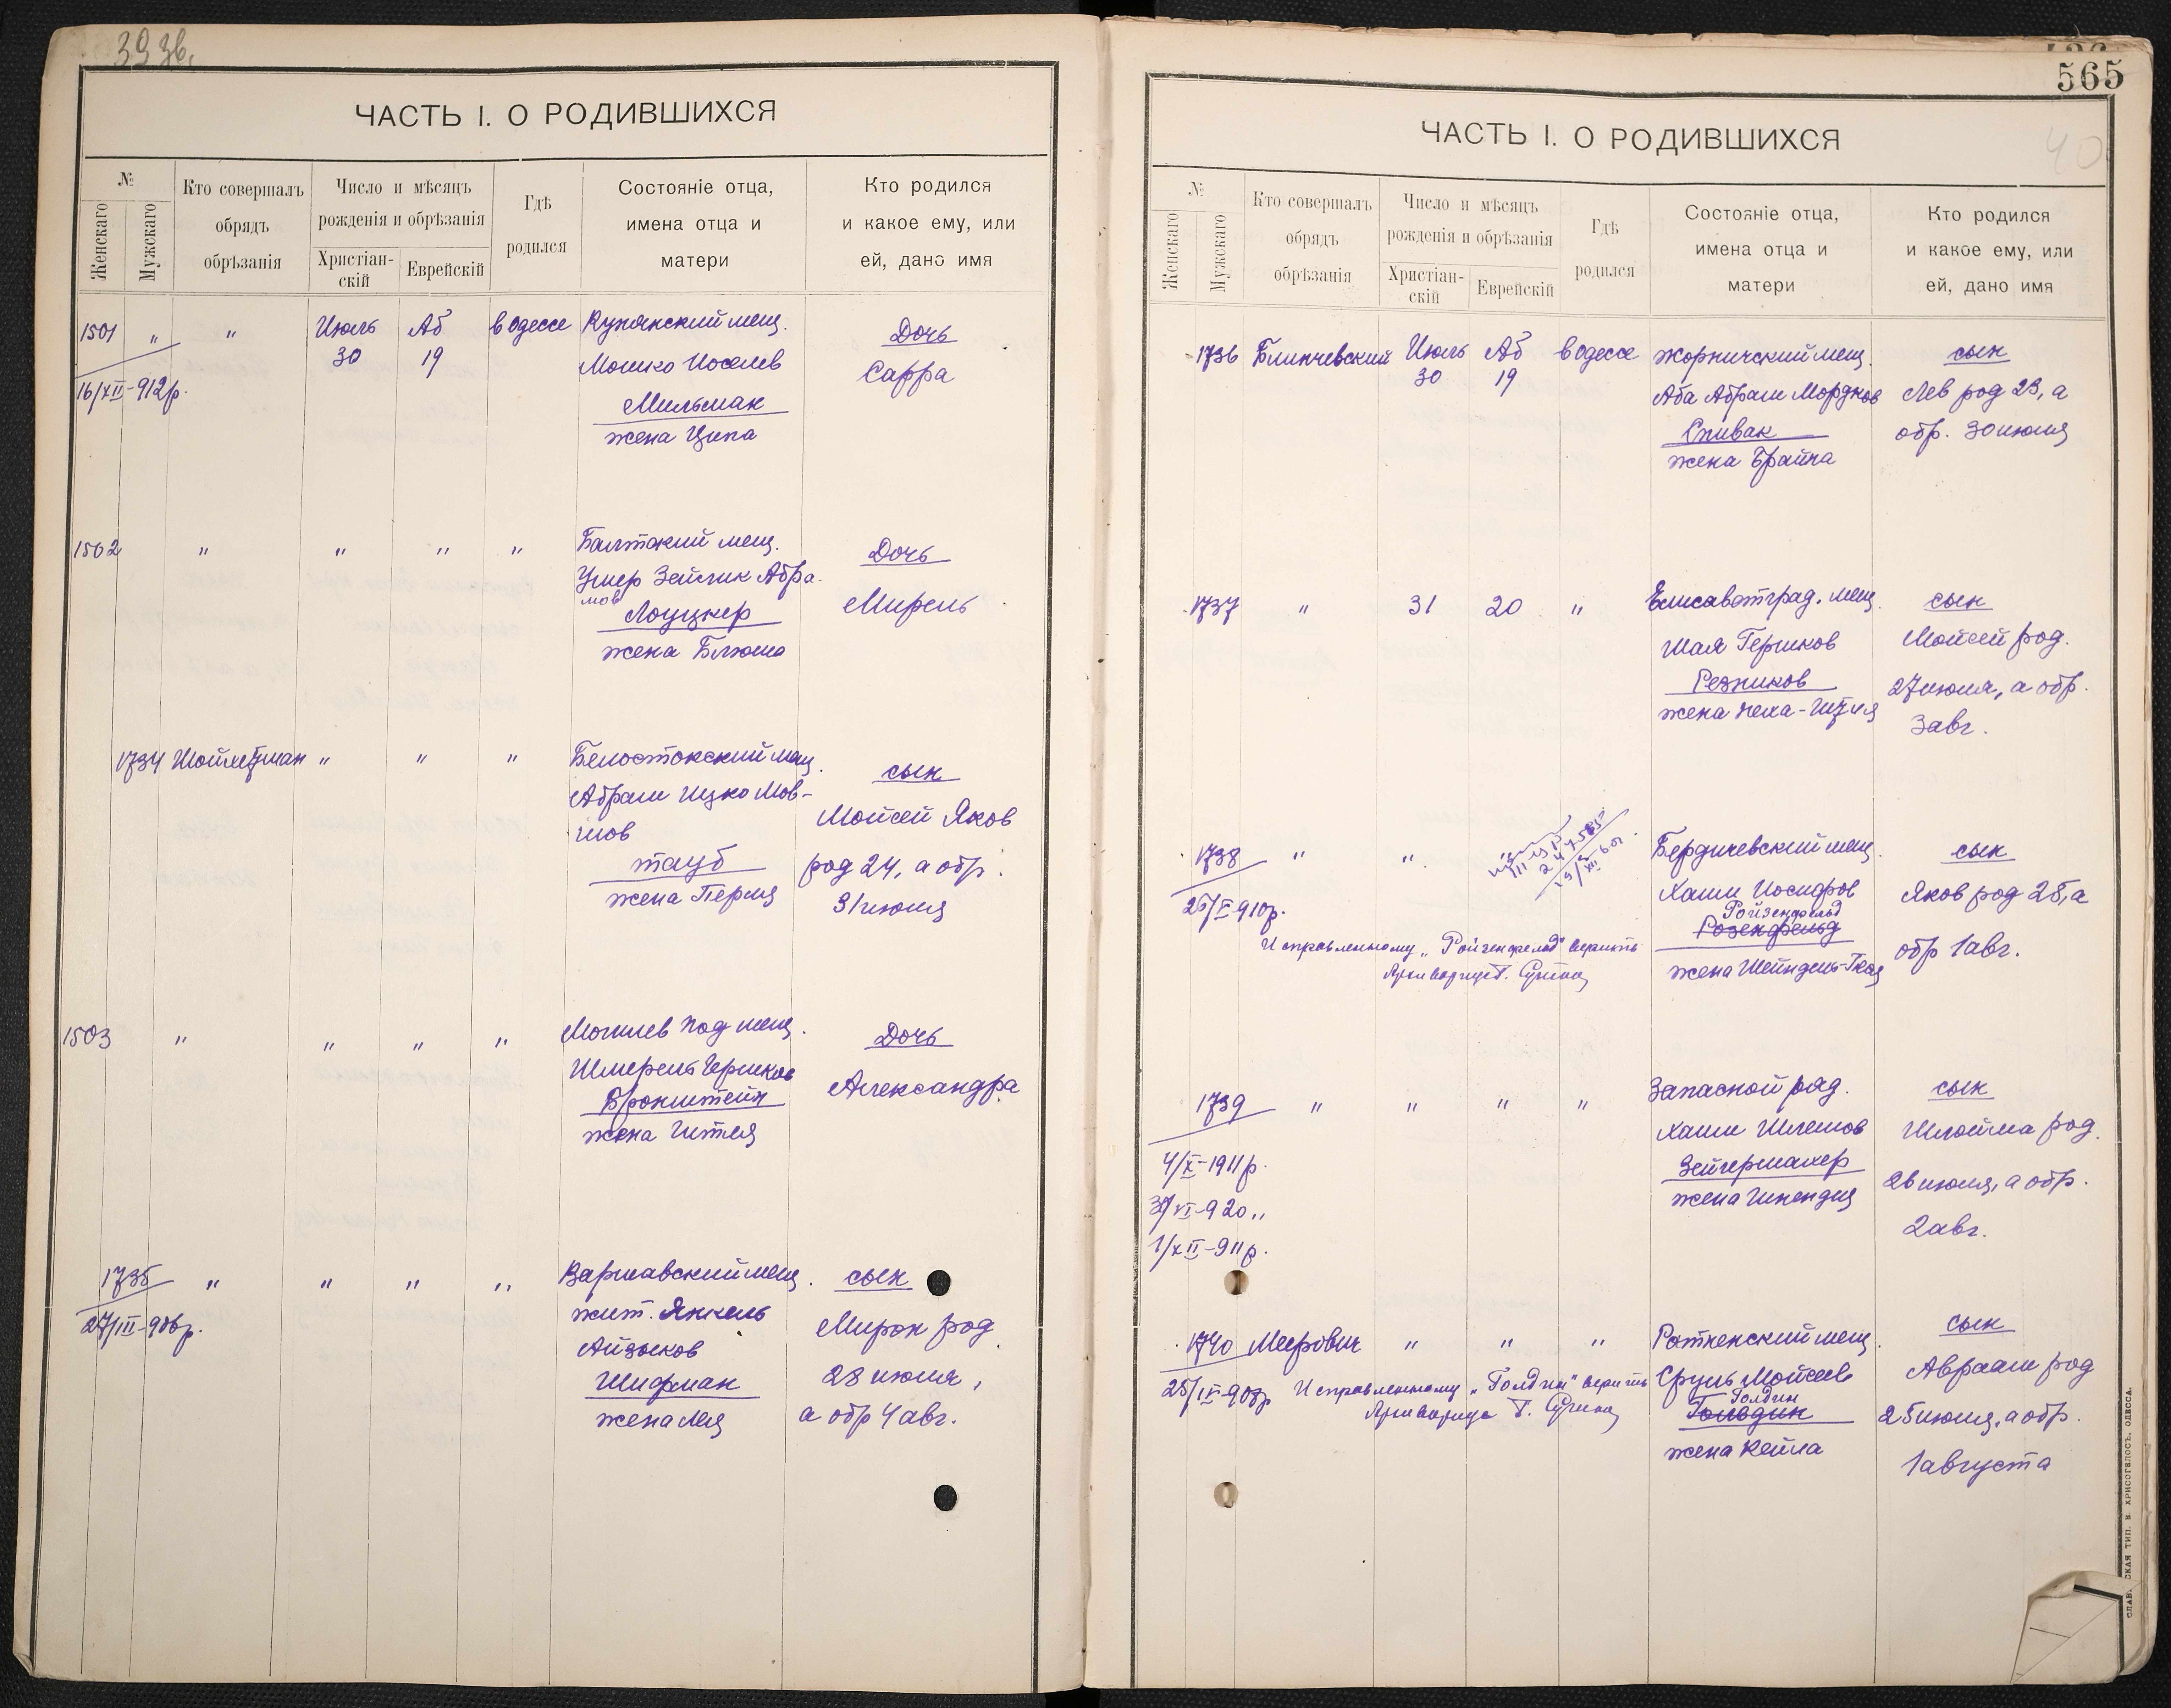 39 зв.
ЧАСТЬ I. О РОДИВШИХСЯ
№
Женскаго
Мужскаго
Кто совершалъ
обрядъ
обрѣзанія
Число и мѣсяцъ
рожденія и обрѣзанія
Христіан-
скій
Еврейскій
Гдѣ
родился
Состояніе отца,
имена отца и
матери
Кто родился
и какое ему, или
ей, дано имя
1501 " " Июль 30 Аб 19 в Одессе
16/XII-912р.
Купянский мещ.
Мошко Иоселев
Мильман
жена Ципа
Дочь
Сарра
1502 " " " "
Балтский мещ.
Ушер Зейлик Абра-
мов
Лоуцкер
жена Блюма
Дочь
Мирель
1734 Шойхетман " " "
Белостокский мещ.
Абрам Ицко Мов-
шов
Тауб
жена Перля
сын
Мойсей Яков
род 24, а обр.
31 июля
1503 " " " "
Могилев под мещ.
Шмерель Гершков
Бронштейн
жена Гитля
Дочь
Александра
1735 " " " "
27/III-906р.
Варшавский мещ.
жит. Янкель
Айзыков
Шифман
жена Лея
сын
Мирон род
28 июля,
а обр 4 авг.
565
40
ЧАСТЬ I. О РОДИВШИХСЯ
№
Женскаго
Мужскаго
Кто совершалъ
обрядъ
обрѣзанія
Число и мѣсяцъ
рожденія и обрѣзанія
Христіан-
скій
Еврейскій
Гдѣ
родился
Состояніе отца,
имена отца и
матери
Кто родился
и какое ему, или
ей, дано имя
1736 Блинчевский Июль 30 Аб 19 в Одессе
Жорнический мещ.
Аба Абрам Мордков
Спивак
жена Брайна
сын
Лев род 23, а
обр. 30 июля
1737 " 31 20 "
Елисаветград. мещ.
Шая Гершков
Резников
жена
сын
Мойсей род.
27 июля, а обр.
3 авг.
1738 " "
26/X-910р.
Исправленному „Ройзенфельд" верить
Бердичевский мещ.
Хаим Иосифов
Ройзенфельд
Розенфельд
жена Шейндель-
сын
Яков род 25, а
обр 1 авг.
1739 " " " "
4/X-1911р.
VI-920"
1/XII-911р.
Запасной ряд.
Хаим Шлемов
Зейгермахер
жена Гинендля
сын
Шлойма род.
26 июля, а обр.
2 авг.
1740 Меерович " " "
25/IX-908р
Исправленному „Голдин" верить
Ротненский мещ.
Сруль Мойсеев
Голдин
Гольдин
жена Кейла
сын
Авраам род
25 июля, а обр.
1 августа
ТИП. В. ХРИСОГЕЛОСЪ, ОДЕССА.